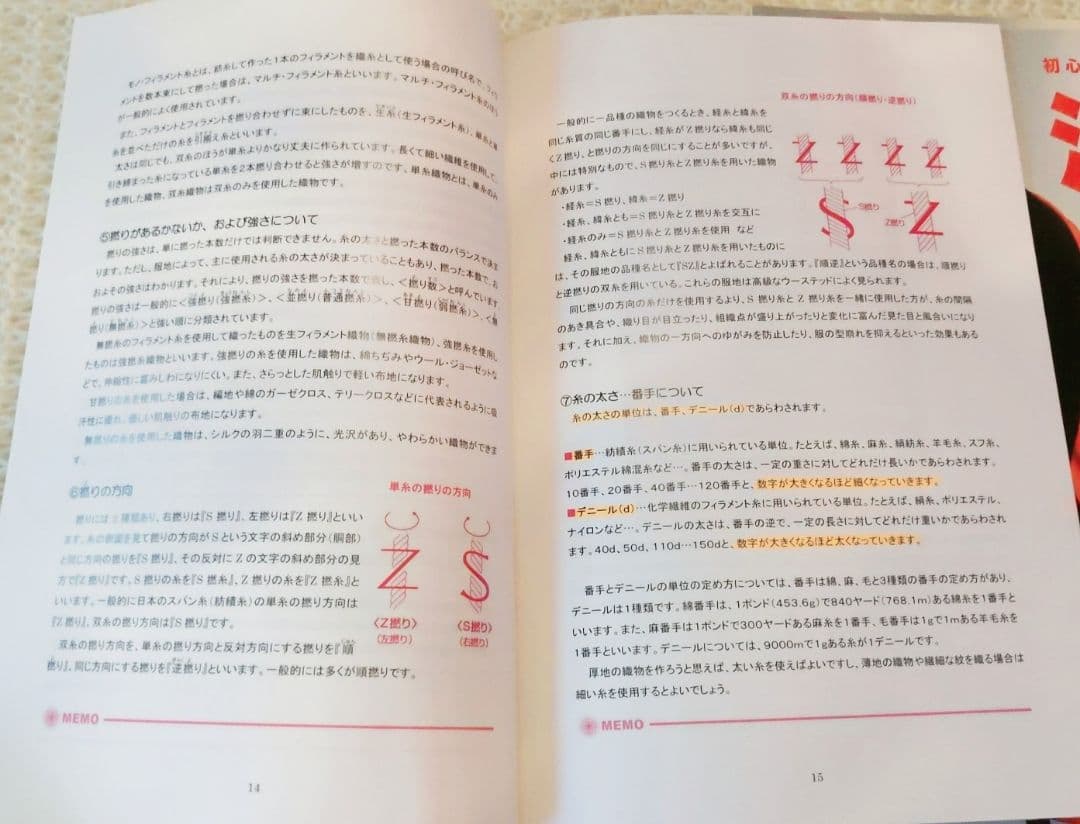 モノ・フィラメント糸とは、紡糸して作った1本のフィラメントを織糸として使う場合の呼び名で、フィラ
メントを数本束にして撚った場合は、マルチ・フィラメント糸といいます。マルチ・フィラメント糸のほう
が一般的によく使用されています。
また、フィラメントとフィラメントを撚り合わせずに束にしたものを、生糸(生フィラメント糸)、単糸と単
糸を並べただけの糸を引揃え糸といいます。
太さは同じでも、双糸のほうが単糸よりかなり丈夫に作られています。長くて細い繊維を使用して、
引き締まった糸になっている単糸を2本撚り合わせると強さが増すのです。単糸織物とは、単糸のみ
を使用した織物、双糸織物は双糸のみを使用した織物です。
⑤撚りがあるかないか、および強さについて
撚りの強さは、単に撚った本数だけでは判断できません。糸の太さと撚った本数のバランスで決ま
ります。ただし、服地によって、主に使用される糸の太さが決まっていることもあり、撚った本数で、お
およその強さはわかります。それにより、撚りの強さを撚った本数で表し、<撚り数>と呼んでいます
撚りの強さは一般的に<強撚り(強撚糸)>、<並撚り(普通撚糸)>、<甘撚り(弱撚糸)>、<無
撚り(無撚糸)>と強い順に分類されています。
無撚糸のフィラメント糸を使用して織ったものを生フィラメント織物(無撚糸織物)、強撚糸を使用し
たものは強撚糸織物といいます。強撚りの糸を使用した織物は、綿ちぢみやウール・ジョーゼットな
どで、伸縮性に富みしわになりにくい。また、さらっとした肌触りで軽い布地になります。
甘撚りの糸を使用した場合は、編地や綿のガーゼクロス、テリークロスなどに代表されるように吸
汗性に優れ、優しい肌触りの布地になります。
無撚りの糸を使用した織物は、シルクの羽二重のように、光沢があり、やわらかい織物ができま
す。
⑥撚りの方向
単糸の撚りの方向
撚りには2種類あり、右撚りは『S撚り』、左撚りは『Z撚り』といい
ます。糸の側面を見て撚りの方向がSという文字の斜め部分(胴部)
と同じ方向の撚りを『S撚り』、その反対にZの文字の斜め部分の見
方で『Z撚り』です。S撚りの糸を『S撚糸』、Z撚りの糸を『Z撚糸』と
いいます。一般的に日本のスパン糸(紡績糸)の単糸の撚り方向は
『Z撚り』、双糸の撚り方向は『S撚り』です。
双糸の撚り方向を、単糸の撚り方向と反対方向にする撚りを『順
撚り』、同じ方向にする撚りを『逆撚り』といいます。一般的には多くが順撚りです。
Z
S
〈Z撚り〉
(左撚り)
〈S撚り〉
(右撚り)
MEMO
14
双糸の撚りの方向(順撚り・逆撚り)
一般的に一品種の織物をつくるとき、経糸と緯糸を
同じ糸質の同じ番手にし、経糸がZ撚りなら緯糸も同じ
くZ撚り、と撚りの方向を同じにすることが多いですが、
中には特別なもので、S撚り糸とZ撚り糸を用いた織物
があります。
・経糸=S撚り、緯糸=Z撚り
・経糸、緯糸とも=S撚り糸とZ撚り糸を交互に
・経糸のみ=S撚り糸とZ撚り糸を使用 など
経糸、緯糸ともにS撚り糸とZ撚り糸を用いたものに
は、その服地の品種名として『SZ』とよばれることがあります。『順逆』という品種名の場合は、順撚り
と逆撚りの双糸を用いている。これらの服地は高級なウーステッドによく見られます。
同じ撚りの方向の糸だけを使用するより、S撚り糸とZ撚り糸を一緒に使用した方が、糸の間隔
のあき具合や、織り目が目立ったり、組織点が盛り上がったりと変化に富んだ見た目と風合いになり
ます。それに加え、織物の一方向へのゆがみを防止したり、服の型崩れを抑えるといった効果もある
のです。
Z Z Z Z
S
S撚り
Z撚り
Z
⑦糸の太さ…番手について
糸の太さの単位は、番手、デニール(d)であらわされます。
■番手…紡績糸(スパン糸)に用いられている単位。たとえば、綿糸、麻糸、絹紡糸、羊毛糸、スフ糸、
ポリエステル綿混糸など…。番手の太さは、一定の重さに対してどれだけ長いかであらわされます。
10番手、20番手、40番手…120番手と、数字が大きくなるほど細くなっていきます。
■デニール(d)…化学繊維のフィラメント糸に用いられている単位。たとえば、絹糸、ポリエステル、
ナイロンなど…。デニールの太さは、番手の逆で、一定の長さに対してどれだけ重いかであらわされ
ます。40d、50d、110d…150dと、数字が大きくなるほど太くなっていきます。
番手とデニールの単位の定め方については、番手は綿、麻、毛と3種類の番手の定め方があり、
デニールは1種類です。綿番手は、1ポンド(453.6g)で840ヤード(768.1m)ある綿糸を1番手と
いいます。また、麻番手は1ポンドで300ヤードある麻糸を1番手、毛番手は1gで1mある羊毛糸を
1番手といいます。デニールについては、9000mで1gある糸が1デニールです。
厚地の織物を作ろうと思えば、太い糸を使えばよいですし、薄地の織物や繊細な紋を織る場合は
細い糸を使用するとよいでしょう。
MEMO
15
初心